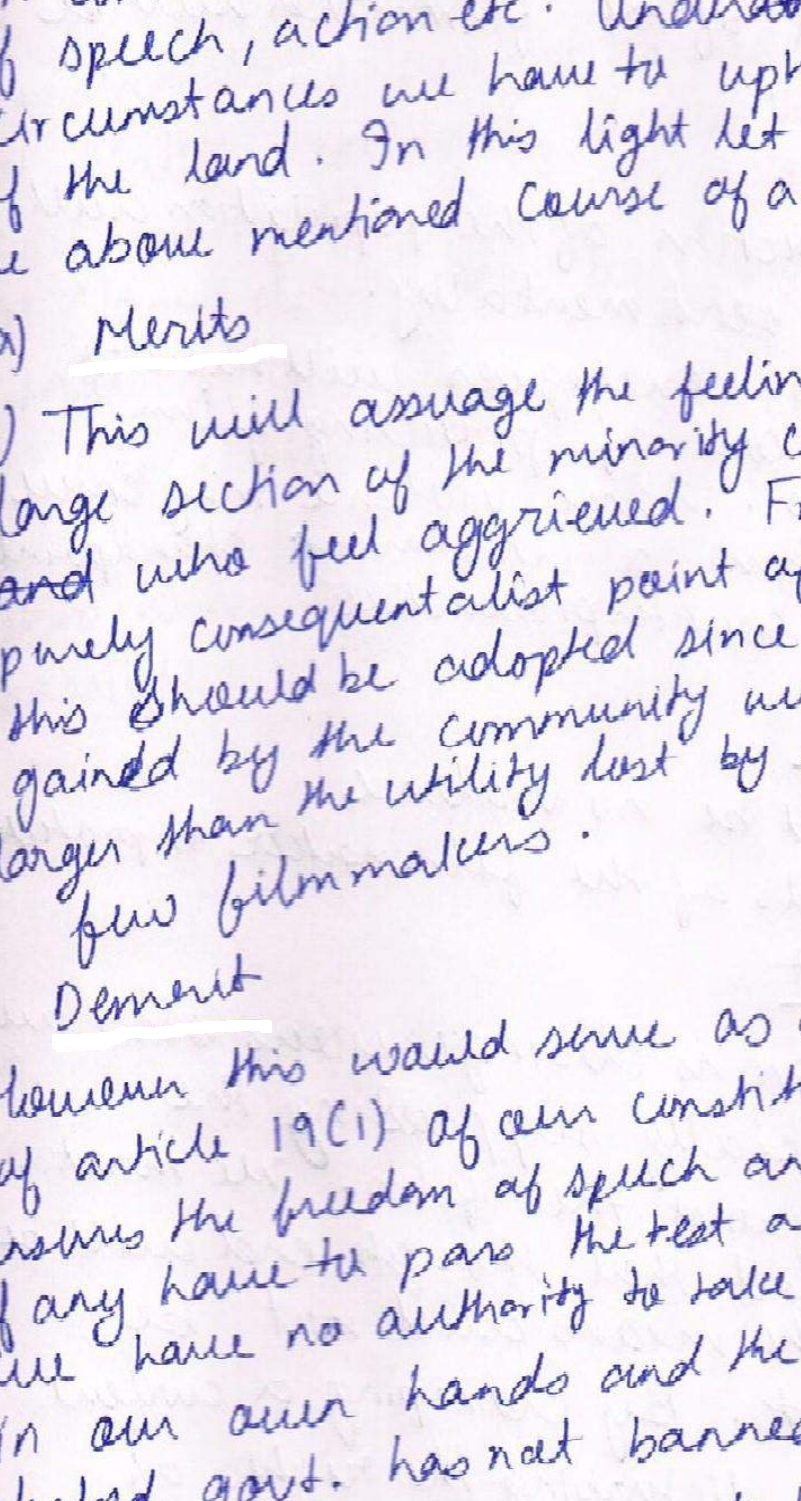 speech, action etc.
circumstances we have to
the land. In this light let
above mentioned course of a
a) Merits
) This will assuage the
large section of the minority
and who feel aggrieved.
purely consequentalist point of
this should be adopted since
gained by the community
larger than the utility lost by
few filmmakers.
Demerit
However this would serve as
of article 19(1) of our
the freedom of speech
any have to pass the test
we have no authority to take
in our own hands and the
govt. has not banned